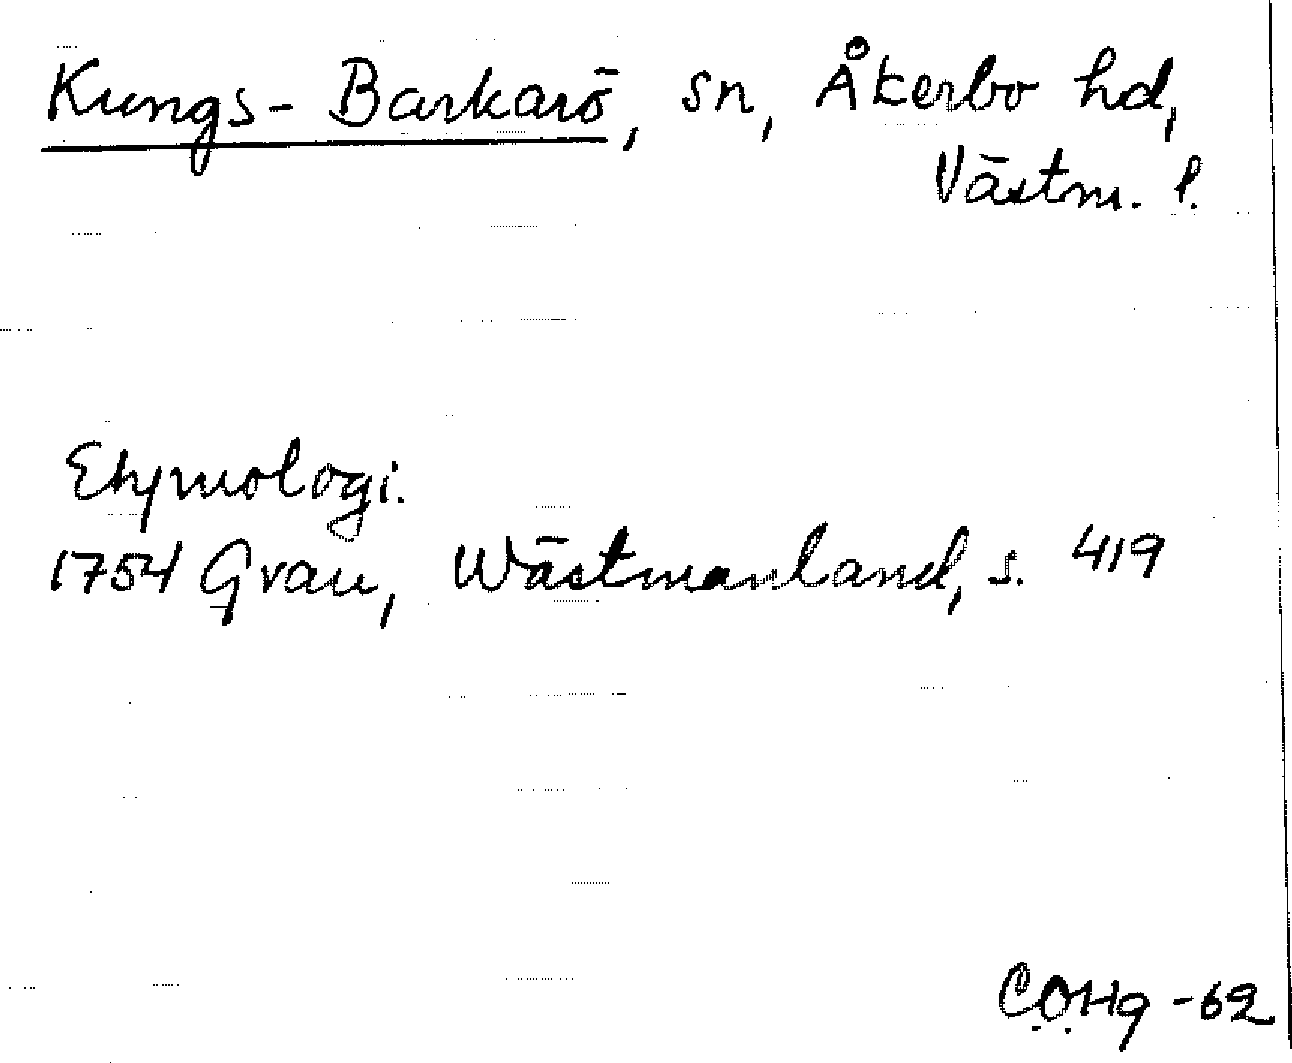 Kungs-Barkarö, sn, Åkerbo hd,
Västm. l.
Etymologi.
1754 Grau, Wästmanland, s. 419
C.O.Hg -62